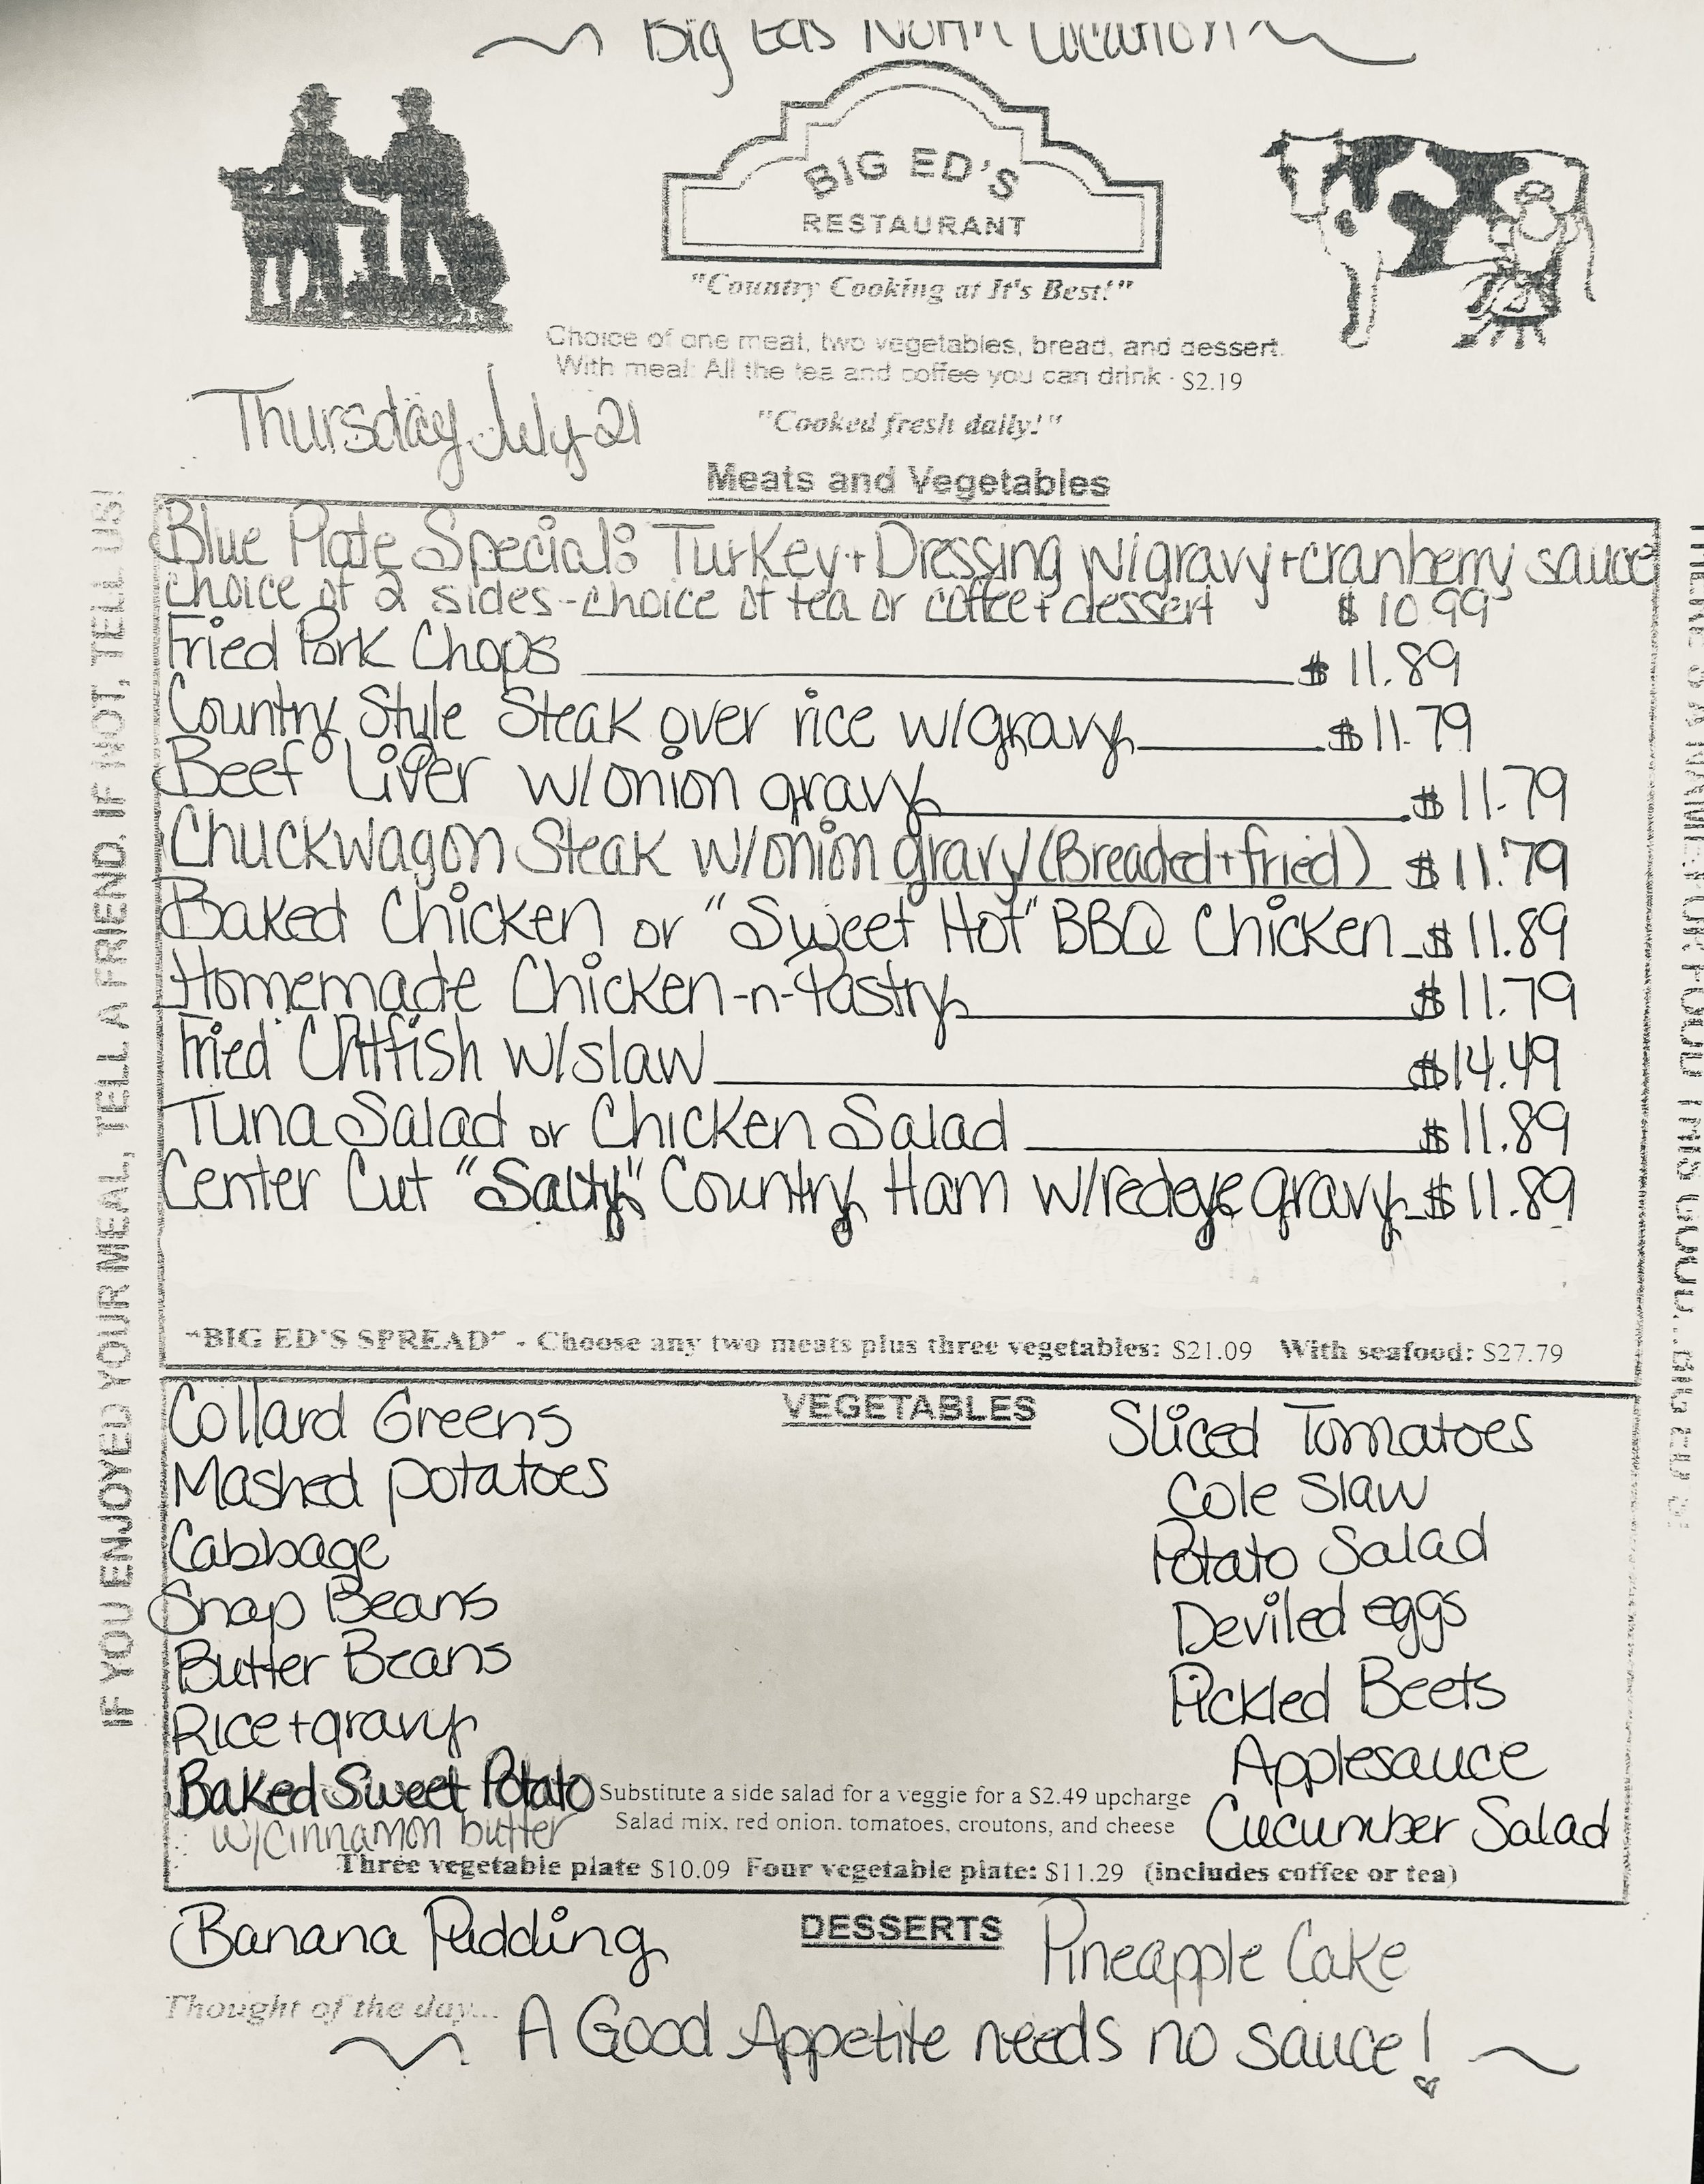 ~ Big Eds North Location ~
BIG ED'S
RESTAURANT
"Country Cooking at It's Best!"
Choice of one meat, two vegetables, bread, and dessert.
With meal: All the tea and coffee you can drink - $2.19
Thursday July 21
"Cooked fresh daily!"
Meats and Vegetables
Blue Plate Special: Turkey + Dressing w/gravy + cranberry sauce
choice of 2 sides - choice of tea or coffee + dessert $10.99
Fried Pork Chops $11.89
Country Style Steak over rice w/gravy $11.79
Beef Liver w/onion gravy $11.79
Chuckwagon Steak w/onion gravy (Breaded + fried) $11.79
Baked Chicken or "Sweet Hot" BBQ Chicken $11.89
Homemade Chicken-n-Pastry $11.79
Fried Catfish w/slaw $14.49
Tuna Salad or Chicken Salad $11.89
Center Cut "Salty" Country Ham w/redeye gravy $11.89
"BIG ED'S SPREAD" - Choose any two meats plus three vegetables: $21.09 With seafood: $27.79
VEGETABLES
Collard Greens
Mashed potatoes
Cabbage
Snap Beans
Butter Beans
Rice + gravy
Baked Sweet Potato
w/cinnamon butter
Sliced Tomatoes
Cole Slaw
Potato Salad
Deviled eggs
Pickled Beets
Applesauce
Cucumber Salad
Substitute a side salad for a veggie for a $2.49 upcharge
Salad mix, red onion, tomatoes, croutons, and cheese
Three vegetable plate $10.09 Four vegetable plate: $11.29 (includes coffee or tea)
DESSERTS
Banana Pudding
Pineapple Cake
Thought of the day...
~ A Good Appetite needs no sauce! ~
IF YOU ENJOYED YOUR MEAL, TELL A FRIEND, IF NOT, TELL US!
THERE'S A NAME FOR FOOD THIS GOOD... BIG ED'S!